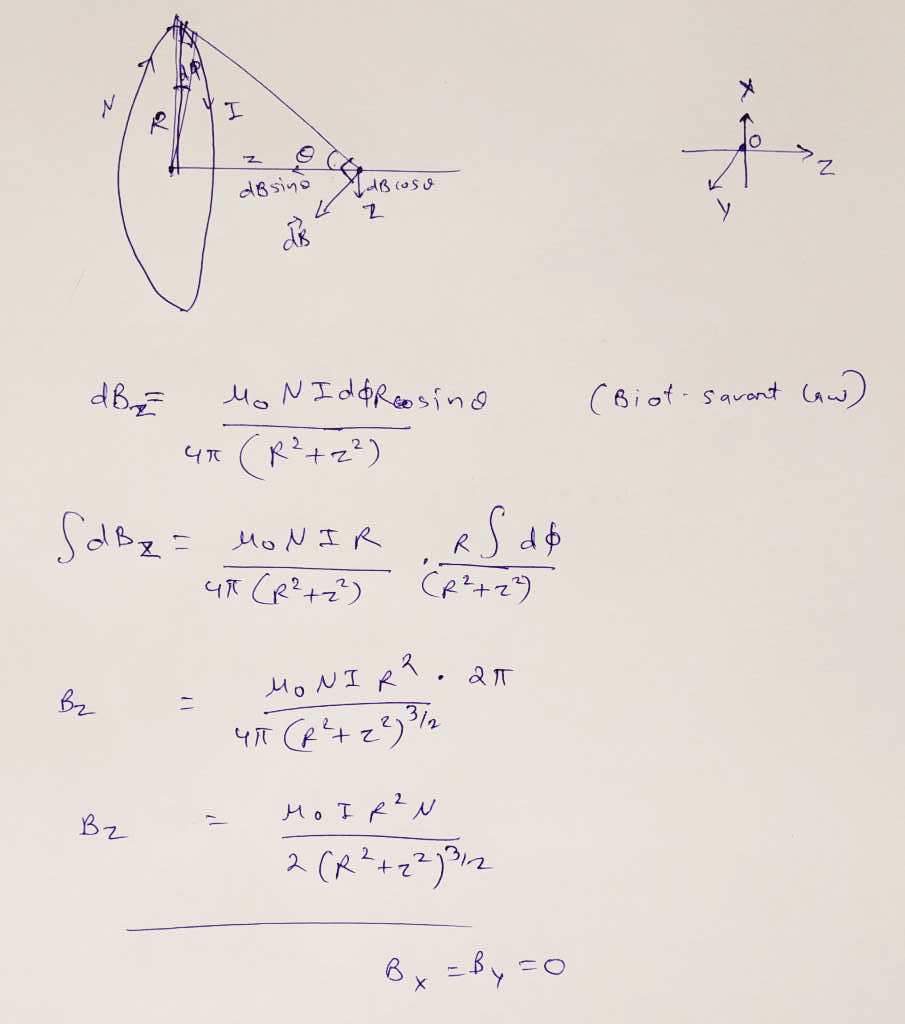 N R dφ I
z θ
dB sinθ dB cosθ
z
→dB
X
O
Z
Y
dB_z = μ₀ N I dφ R sinθ / 4π (R² + z²) (Biot-savart law)
∫dB_z = μ₀ N I R / 4π (R² + z²) . R ∫ dφ / (R² + z²)
B_z = μ₀ N I R² . 2π / 4π (R² + z²)^3/2
B_z = μ₀ I R² N / 2 (R² + z²)^3/2
B_x = B_y = 0